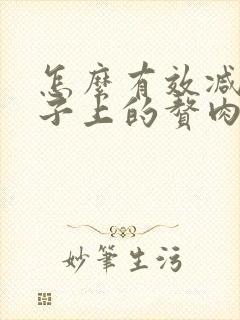 怎麼有效減
子上的贅肉
妙筆生污